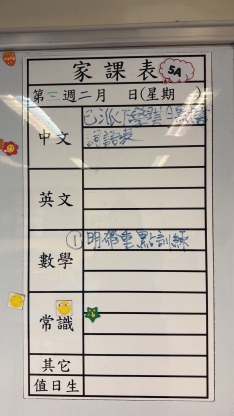 家課表
5A
第三週二月 日(星期 )
中文
詞語表
英文
數學
①明帶重點訓練
常識
其它
值日生